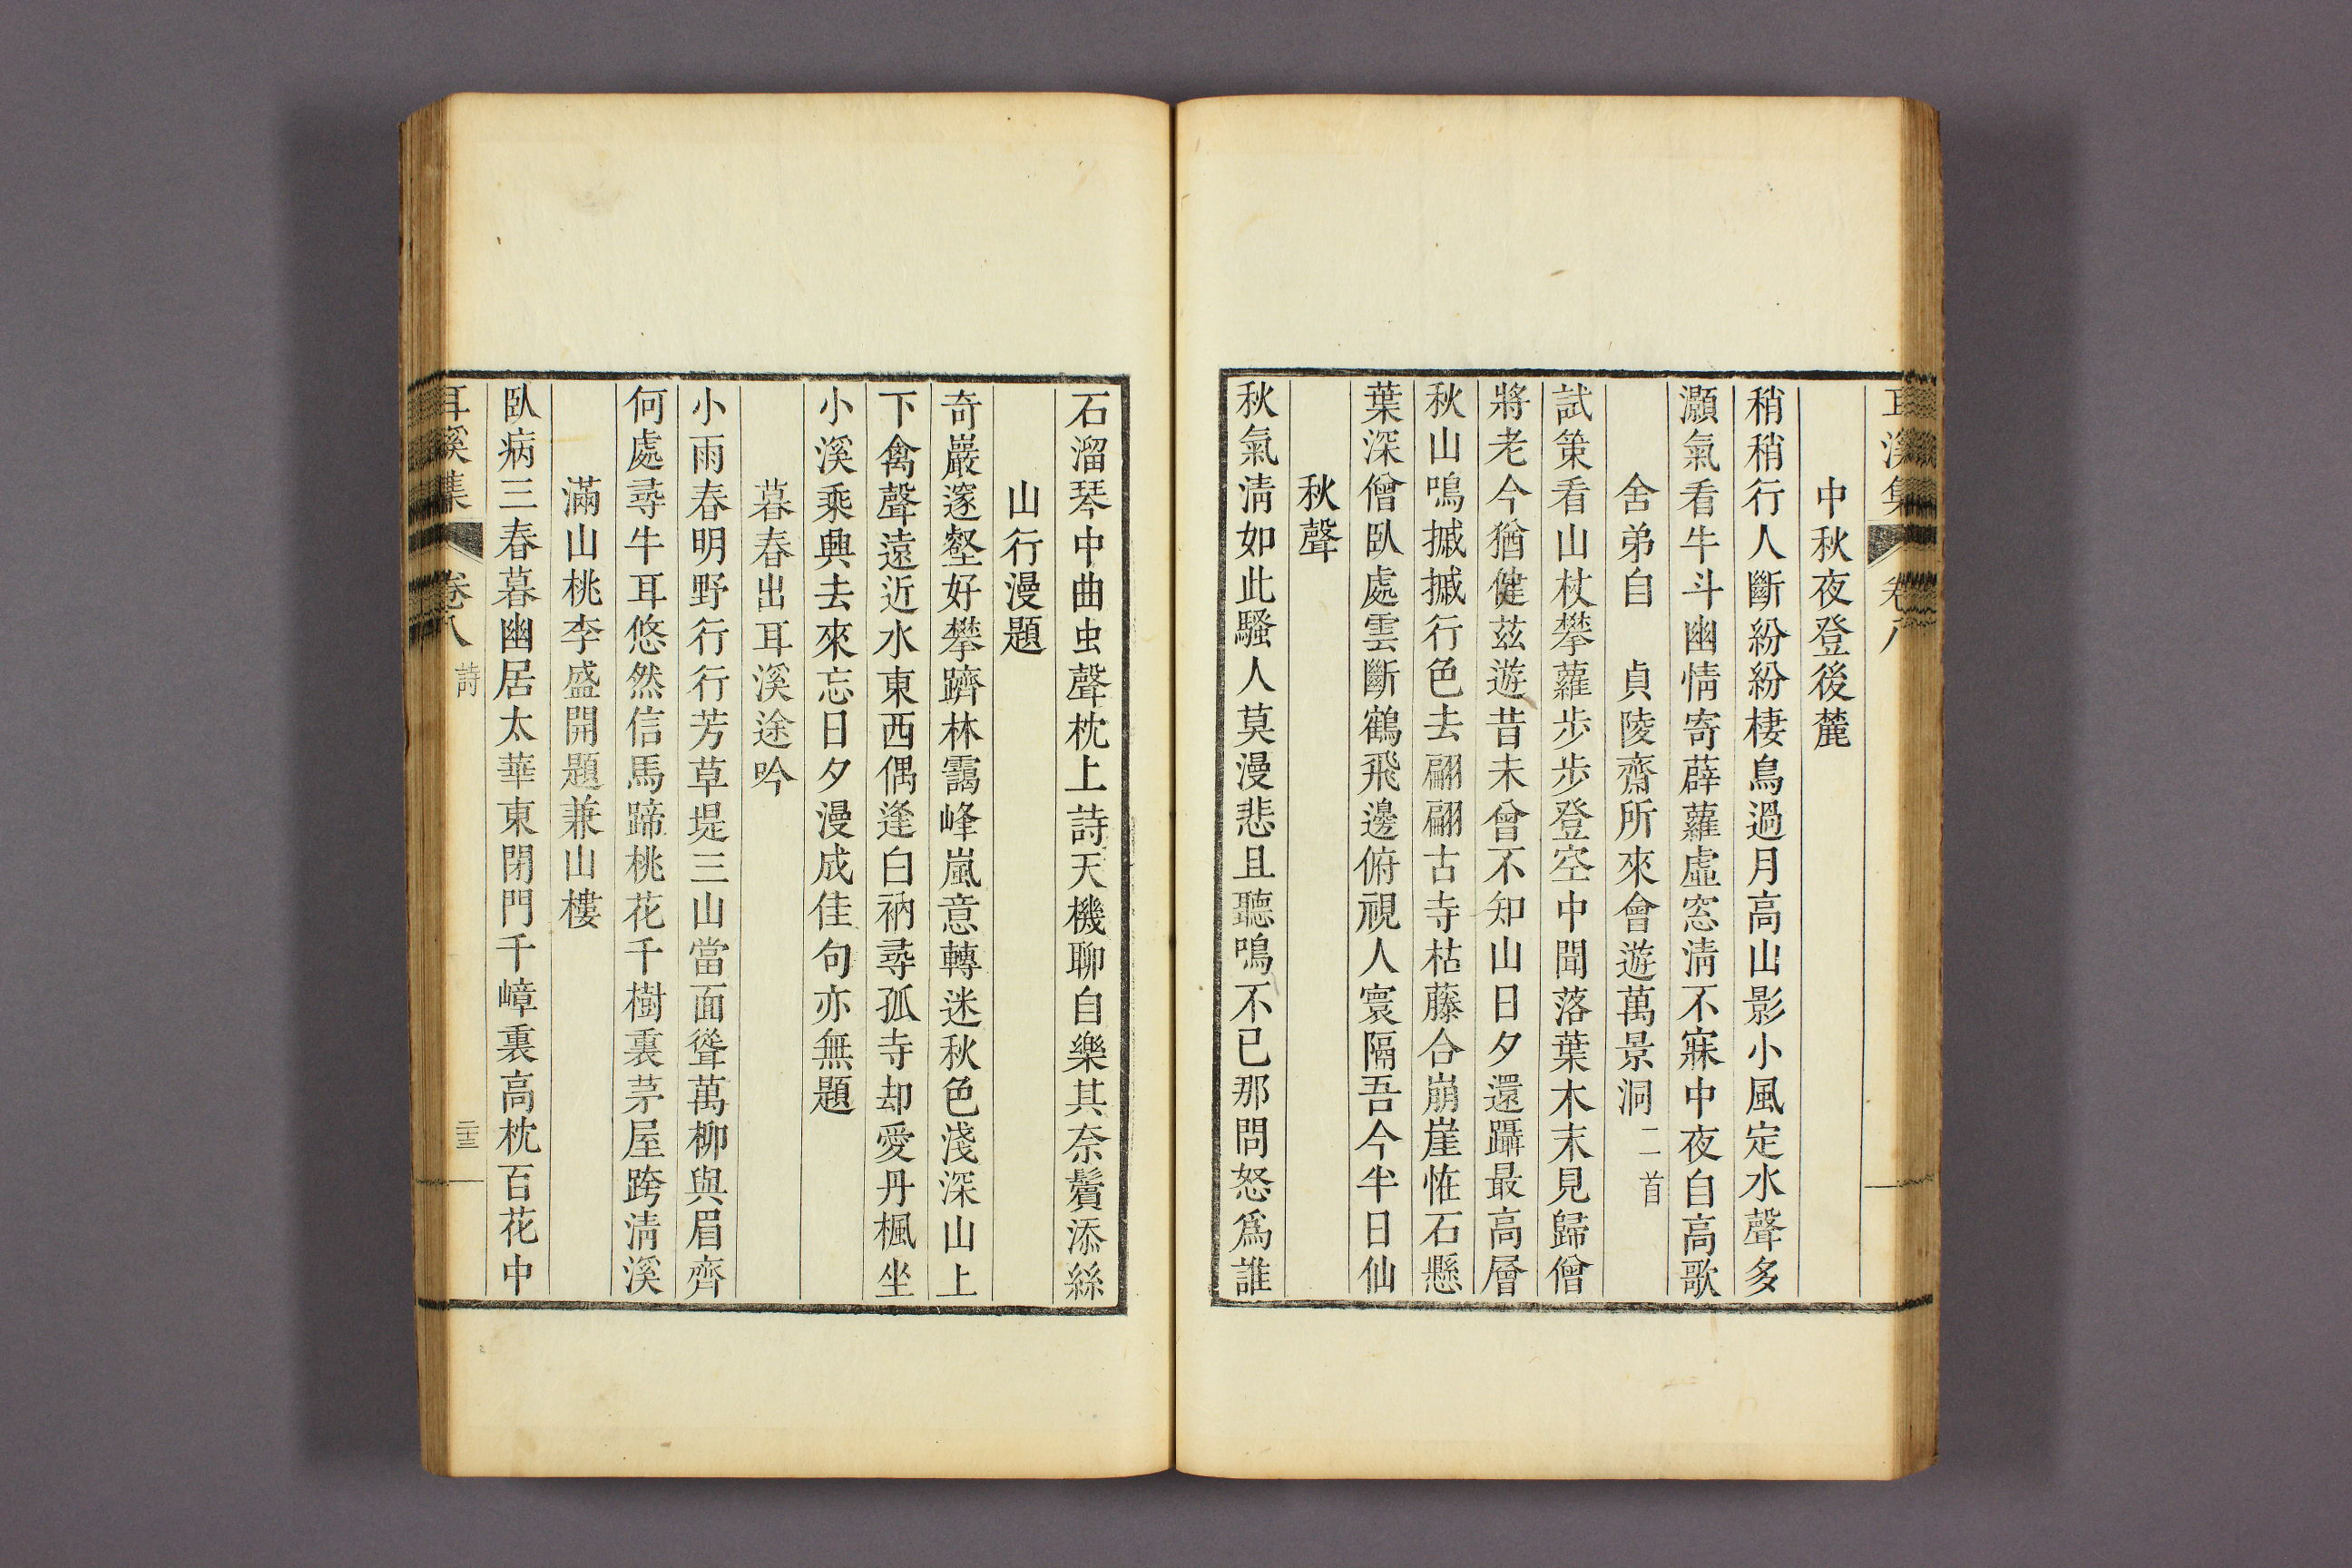 耳溪集 卷八
中秋夜登後麓
稍稍行人斷紛紛棲鳥過月高山影小風定水聲多
灝氣看牛斗幽情寄薜蘿虛窓淸不寐中夜自高歌
舍弟自 貞陵齋所來會遊萬景洞 二首
試策看山杖攀蘿步步登空中聞落葉木末見歸僧
將老今猶健茲遊昔未曾不知山日夕還躡最高層
秋山鳴摵摵行色去翩翩古寺枯藤合崩崖恠石懸
葉深僧臥處雲斷鶴飛邊俯視人寰隔吾今半日仙
秋聲
秋氣淸如此騷人莫漫悲且聽鳴不已那問怒爲誰
石溜琴中曲虫聲枕上詩天機聊自樂其奈鬢添絲
山行漫題
奇巖邃壑好攀躋林靄峰嵐意轉迷秋色淺深山上
下禽聲遠近水東西偶逢白衲尋孤寺却愛丹楓坐
小溪乘興去來忘日夕漫成佳句亦無題
暮春出耳溪途吟
小雨春明野行行芳草堤三山當面聳萬柳與眉齊
何處尋牛耳悠然信馬蹄桃花千樹裏茅屋跨淸溪
滿山桃李盛開題兼山樓
臥病三春暮幽居太華東閉門千嶂裏高枕百花中
耳溪集 卷八 詩 二十三